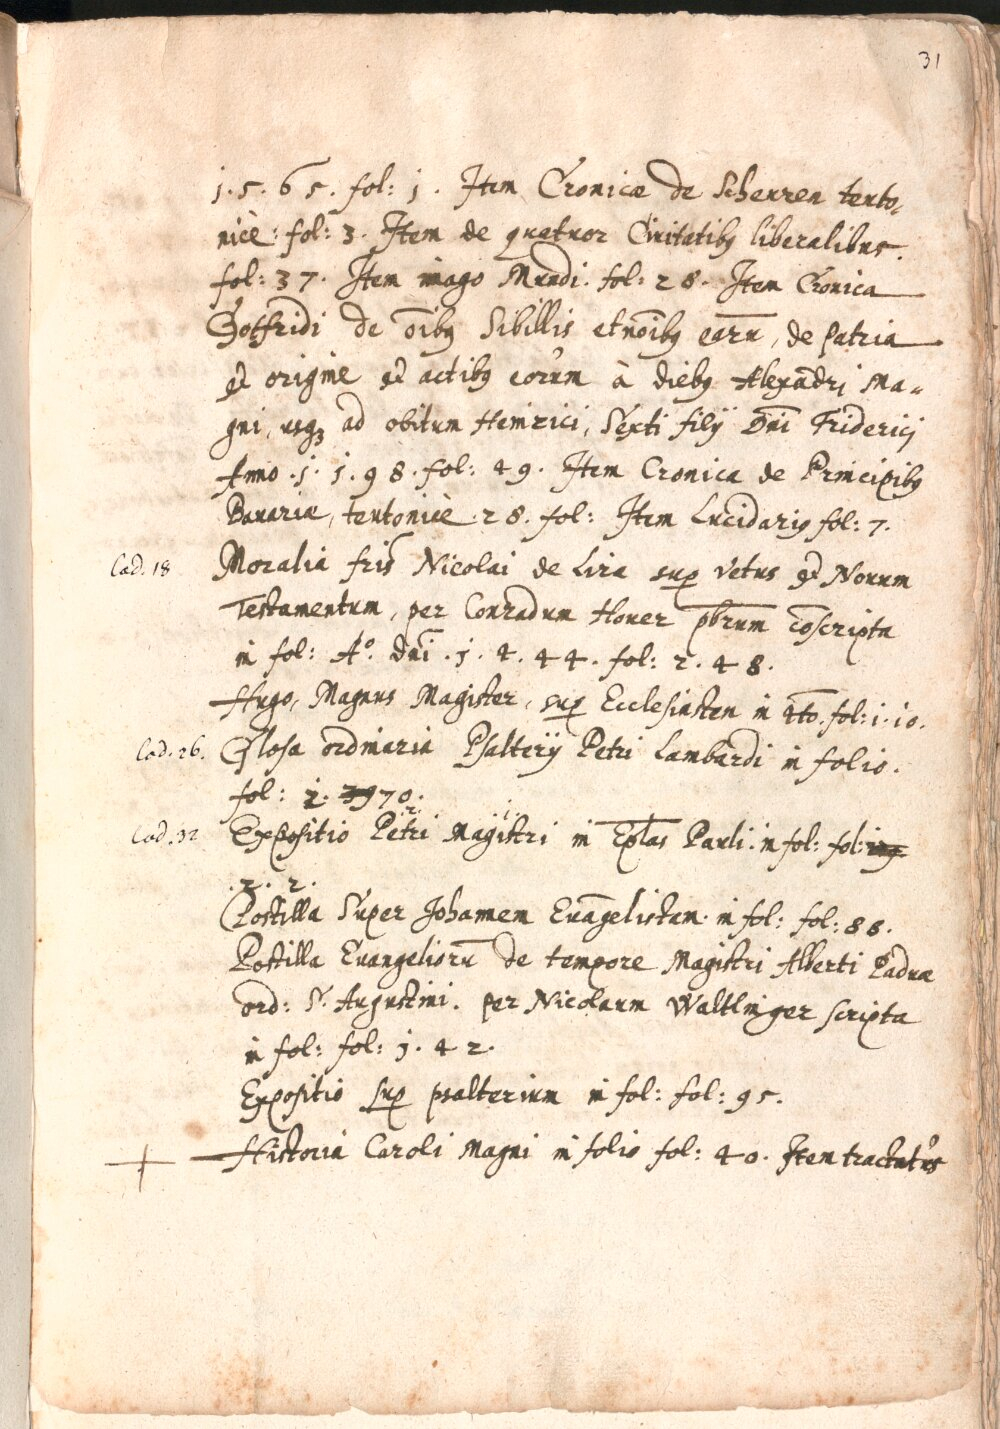 31
1.5.65. fol: 1. Item Cronicæ de Scheuren teuto,
nicè: fol: 3. Item de quatuor Civitatibꝫ liberalibus.
fol: 37. Item imago Mundi. fol: 28. Item Cronica
Gotfridi de oībꝫ Sibillis et noībꝫ earū, de Patria
et origine et actibꝫ eorum à diebꝫ Alexādri Ma-
gni, usqꝫ ad obitum Heinrici, Sexti filÿ Dn̄i Friderici
Anno .1.1.98. fol: 49. Item Cronica de Principibꝫ
Bavariæ, teutonicè 28. fol: Item Lucidariꝫ fol: 7.
Cod. 18 Moralia fr̄is Nicolai de Lira suꝑ vetus et Novum
Testamentum, per Conradum Hover p̄brum cōscripta
in fol: Aº. dn̄i .1.4.44. fol: 2.48.
Hugo, Magnus Magister, suꝑ Ecclesiasten in 4to. fol: 1.10.
Cod. 26. Glosa ordinaria Psalterÿ Petri Lambardi in folio.
fol: 2. 39 70.
Cod. 32 Expositio Petri Magistri in Ep̄las Pauli. in fol: fol:
.2.2.
Postilla Super Johannem Evāgelistam. in fol: fol: 88.
Postilla Evangeliorū de tempore Magistri Alberti Paduæ
ord: S. Augustini. per Nicolaum Waltlinger scripta
in fol: fol: 1.42.
Expositio suꝑ psalterium in fol: fol: 95.
Historia Caroli Magni in folio fol: 40. Item tractatus